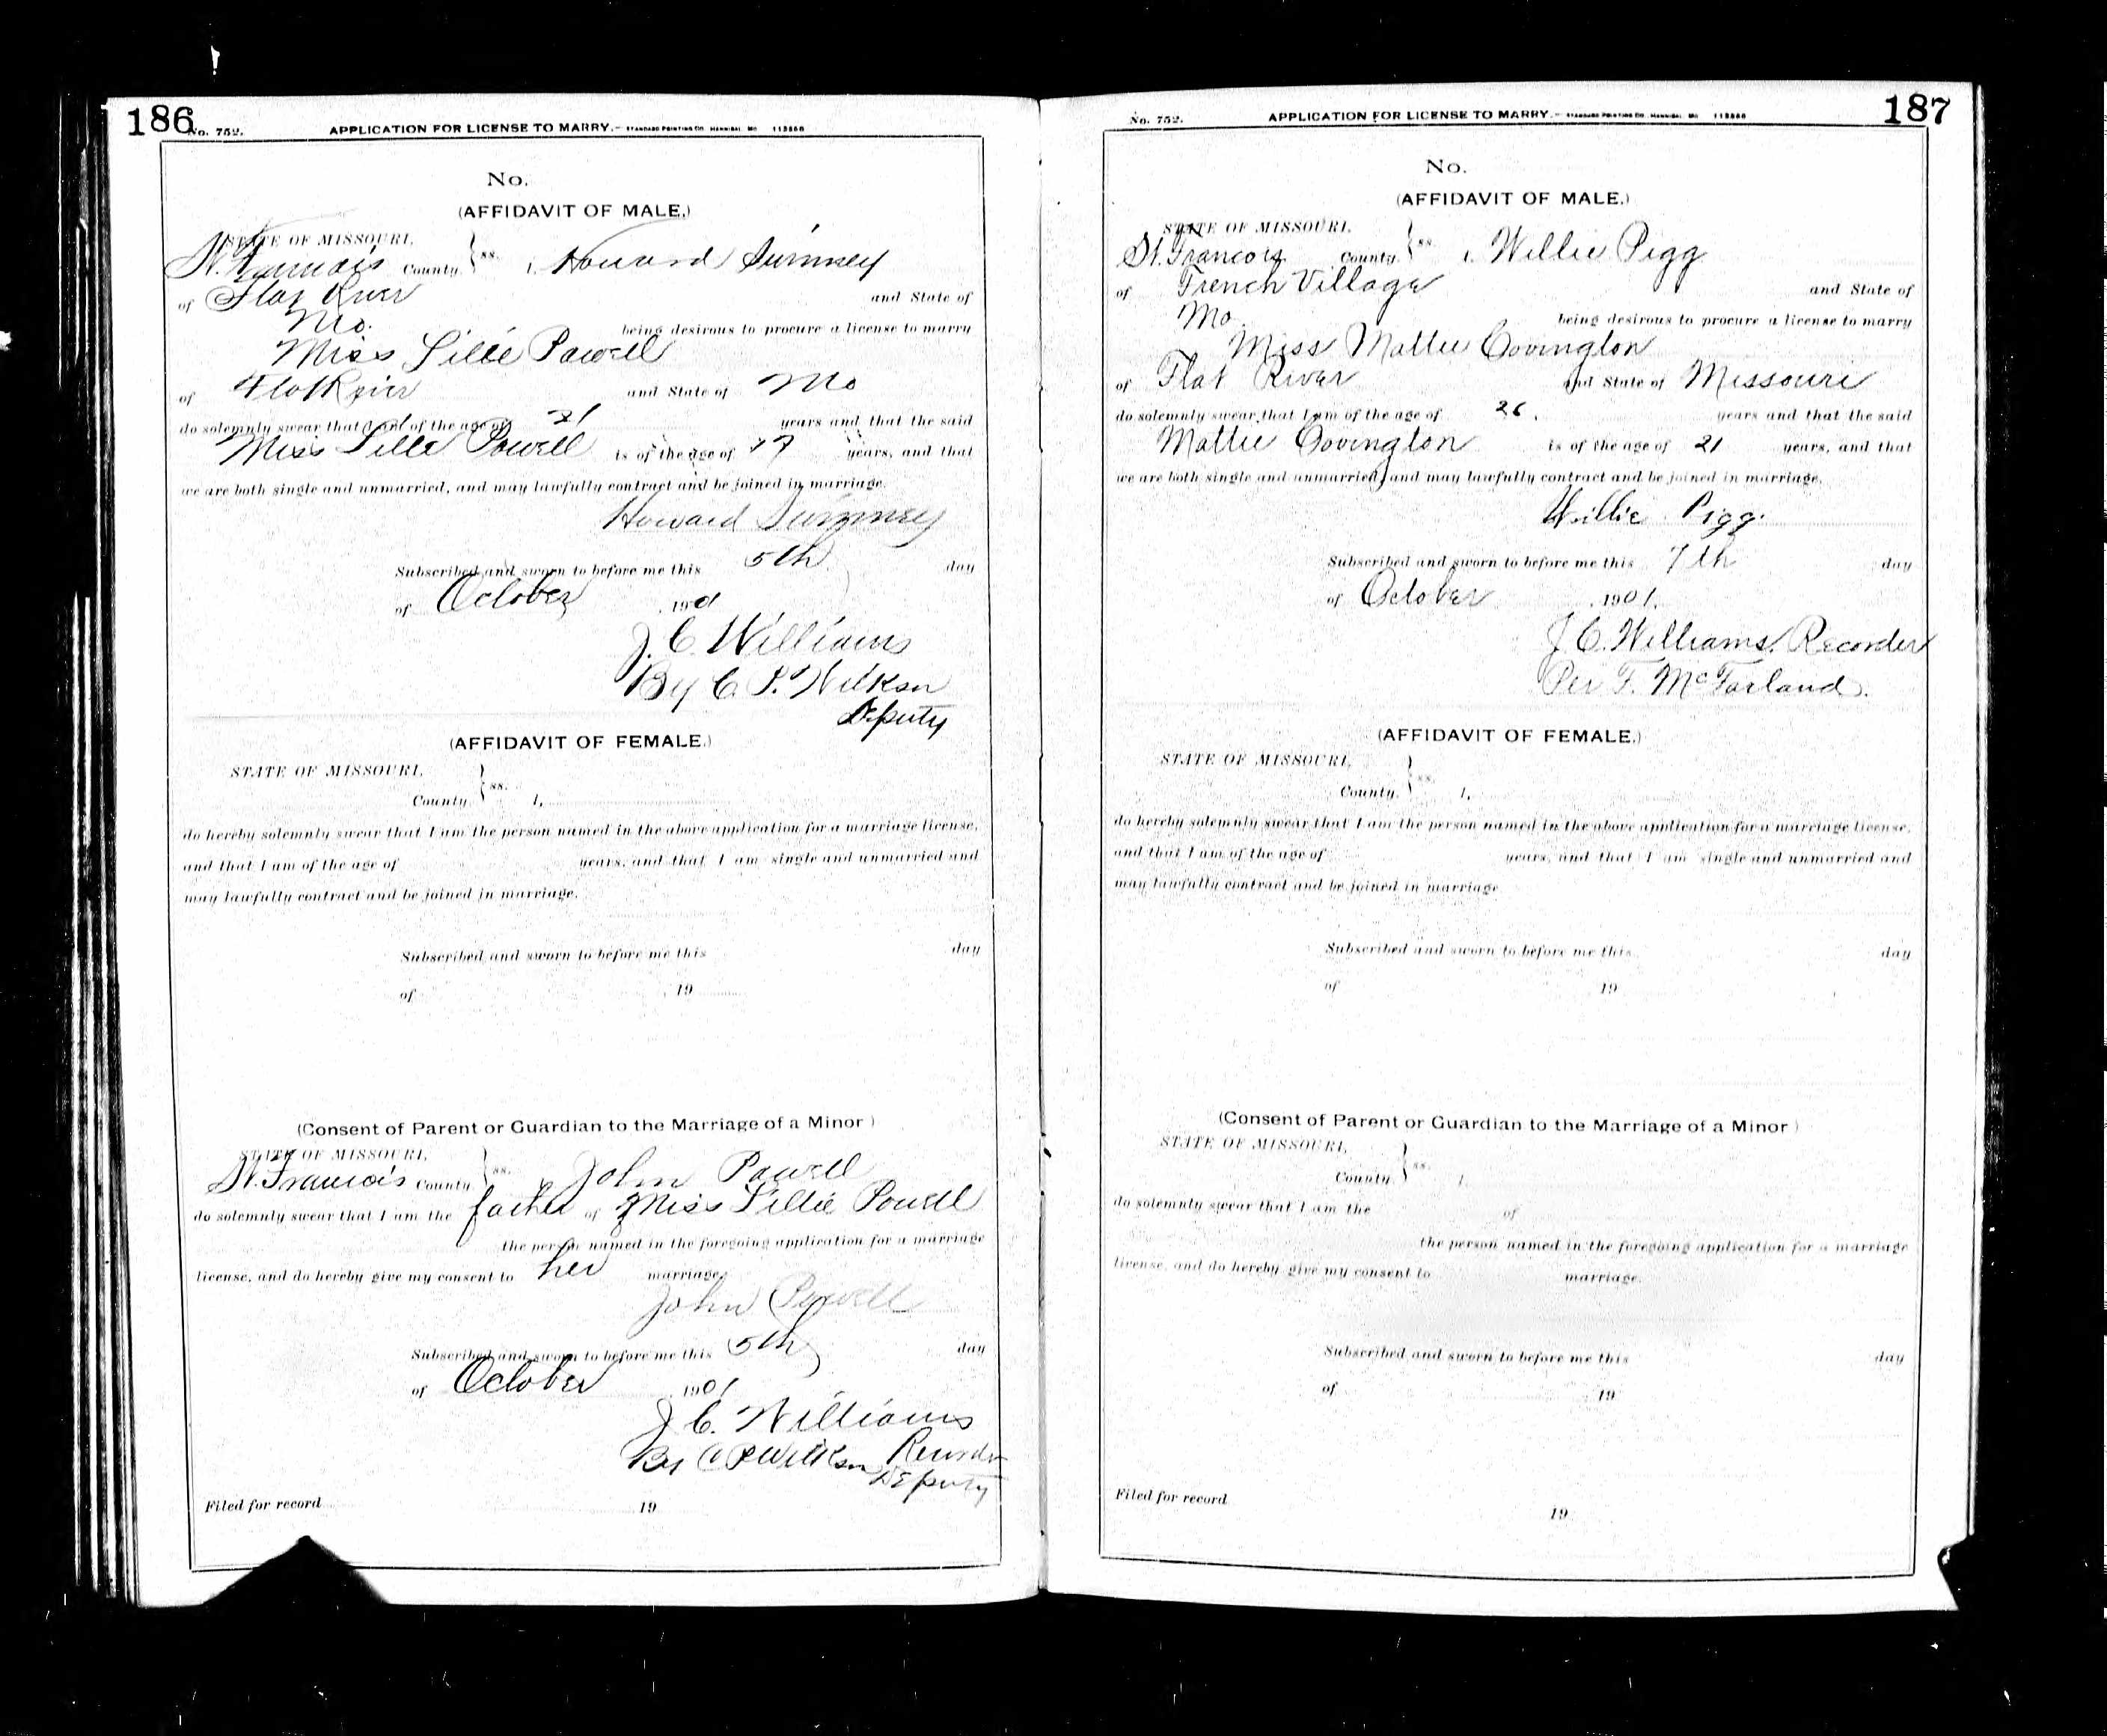 186 No. 752. APPLICATION FOR LICENSE TO MARRY.- STANDARD PRINTING CO. HANNIBAL MO 113556
No.
(AFFIDAVIT OF MALE.)
STATE OF MISSOURI,
St. Francois County. } ss. I, Howard Sumney
of Flat River and State of
Mo. being desirous to procure a license to marry
Miss Lillie Powell
of Flat River and State of Mo
do solemnly swear that I am of the age of 21 years and that the said
Miss Lillie Powell is of the age of 17 years, and that
we are both single and unmarried, and may lawfully contract and be joined in marriage.
Howard Sumney
Subscribed and sworn to before me this 5th day
of October 1901
J. C. Williams
By C. P. Wilkson
Deputy
(AFFIDAVIT OF FEMALE.)
STATE OF MISSOURI,
County. } ss. I,
do hereby solemnly swear that I am the person named in the above application for a marriage license,
and that I am of the age of years, and that I am single and unmarried and
may lawfully contract and be joined in marriage.
Subscribed and sworn to before me this day
of , 19
(Consent of Parent or Guardian to the Marriage of a Minor)
STATE OF MISSOURI,
St. Francois County } ss. John Powell
do solemnly swear that I am the father of Miss Lillie Powell
the person named in the foregoing application for a marriage
license, and do hereby give my consent to her marriage.
John Powell
Subscribed and sworn to before me this 5th day
of October 1901
J. C. Williams
By C P Wilkson Recorder
Deputy
Filed for record 19
No. 752. APPLICATION FOR LICENSE TO MARRY.- STANDARD PRINTING CO. HANNIBAL MO 113556 187
No.
(AFFIDAVIT OF MALE.)
STATE OF MISSOURI,
St. Francois County. } ss. I, Willie Pigg
of French Village and State of
Mo. being desirous to procure a license to marry
Miss Mattie Covington
of Flat River and State of Missouri
do solemnly swear that I am of the age of 26. years and that the said
Mattie Covington is of the age of 21 years, and that
we are both single and unmarried, and may lawfully contract and be joined in marriage.
Willie Pigg.
Subscribed and sworn to before me this 7th day
of October , 1901.
J. C. Williams. Recorder
Per F. McFarland.
(AFFIDAVIT OF FEMALE.)
STATE OF MISSOURI,
County. } ss. I,
do hereby solemnly swear that I am the person named in the above application for a marriage license,
and that I am of the age of years, and that I am single and unmarried and
may lawfully contract and be joined in marriage
Subscribed and sworn to before me this day
of 19
(Consent of Parent or Guardian to the Marriage of a Minor)
STATE OF MISSOURI,
County. } ss. I,
do solemnly swear that I am the of
the person named in the foregoing application for a marriage
license, and do hereby give my consent to marriage.
Subscribed and sworn to before me this day
of 19
Filed for record 19